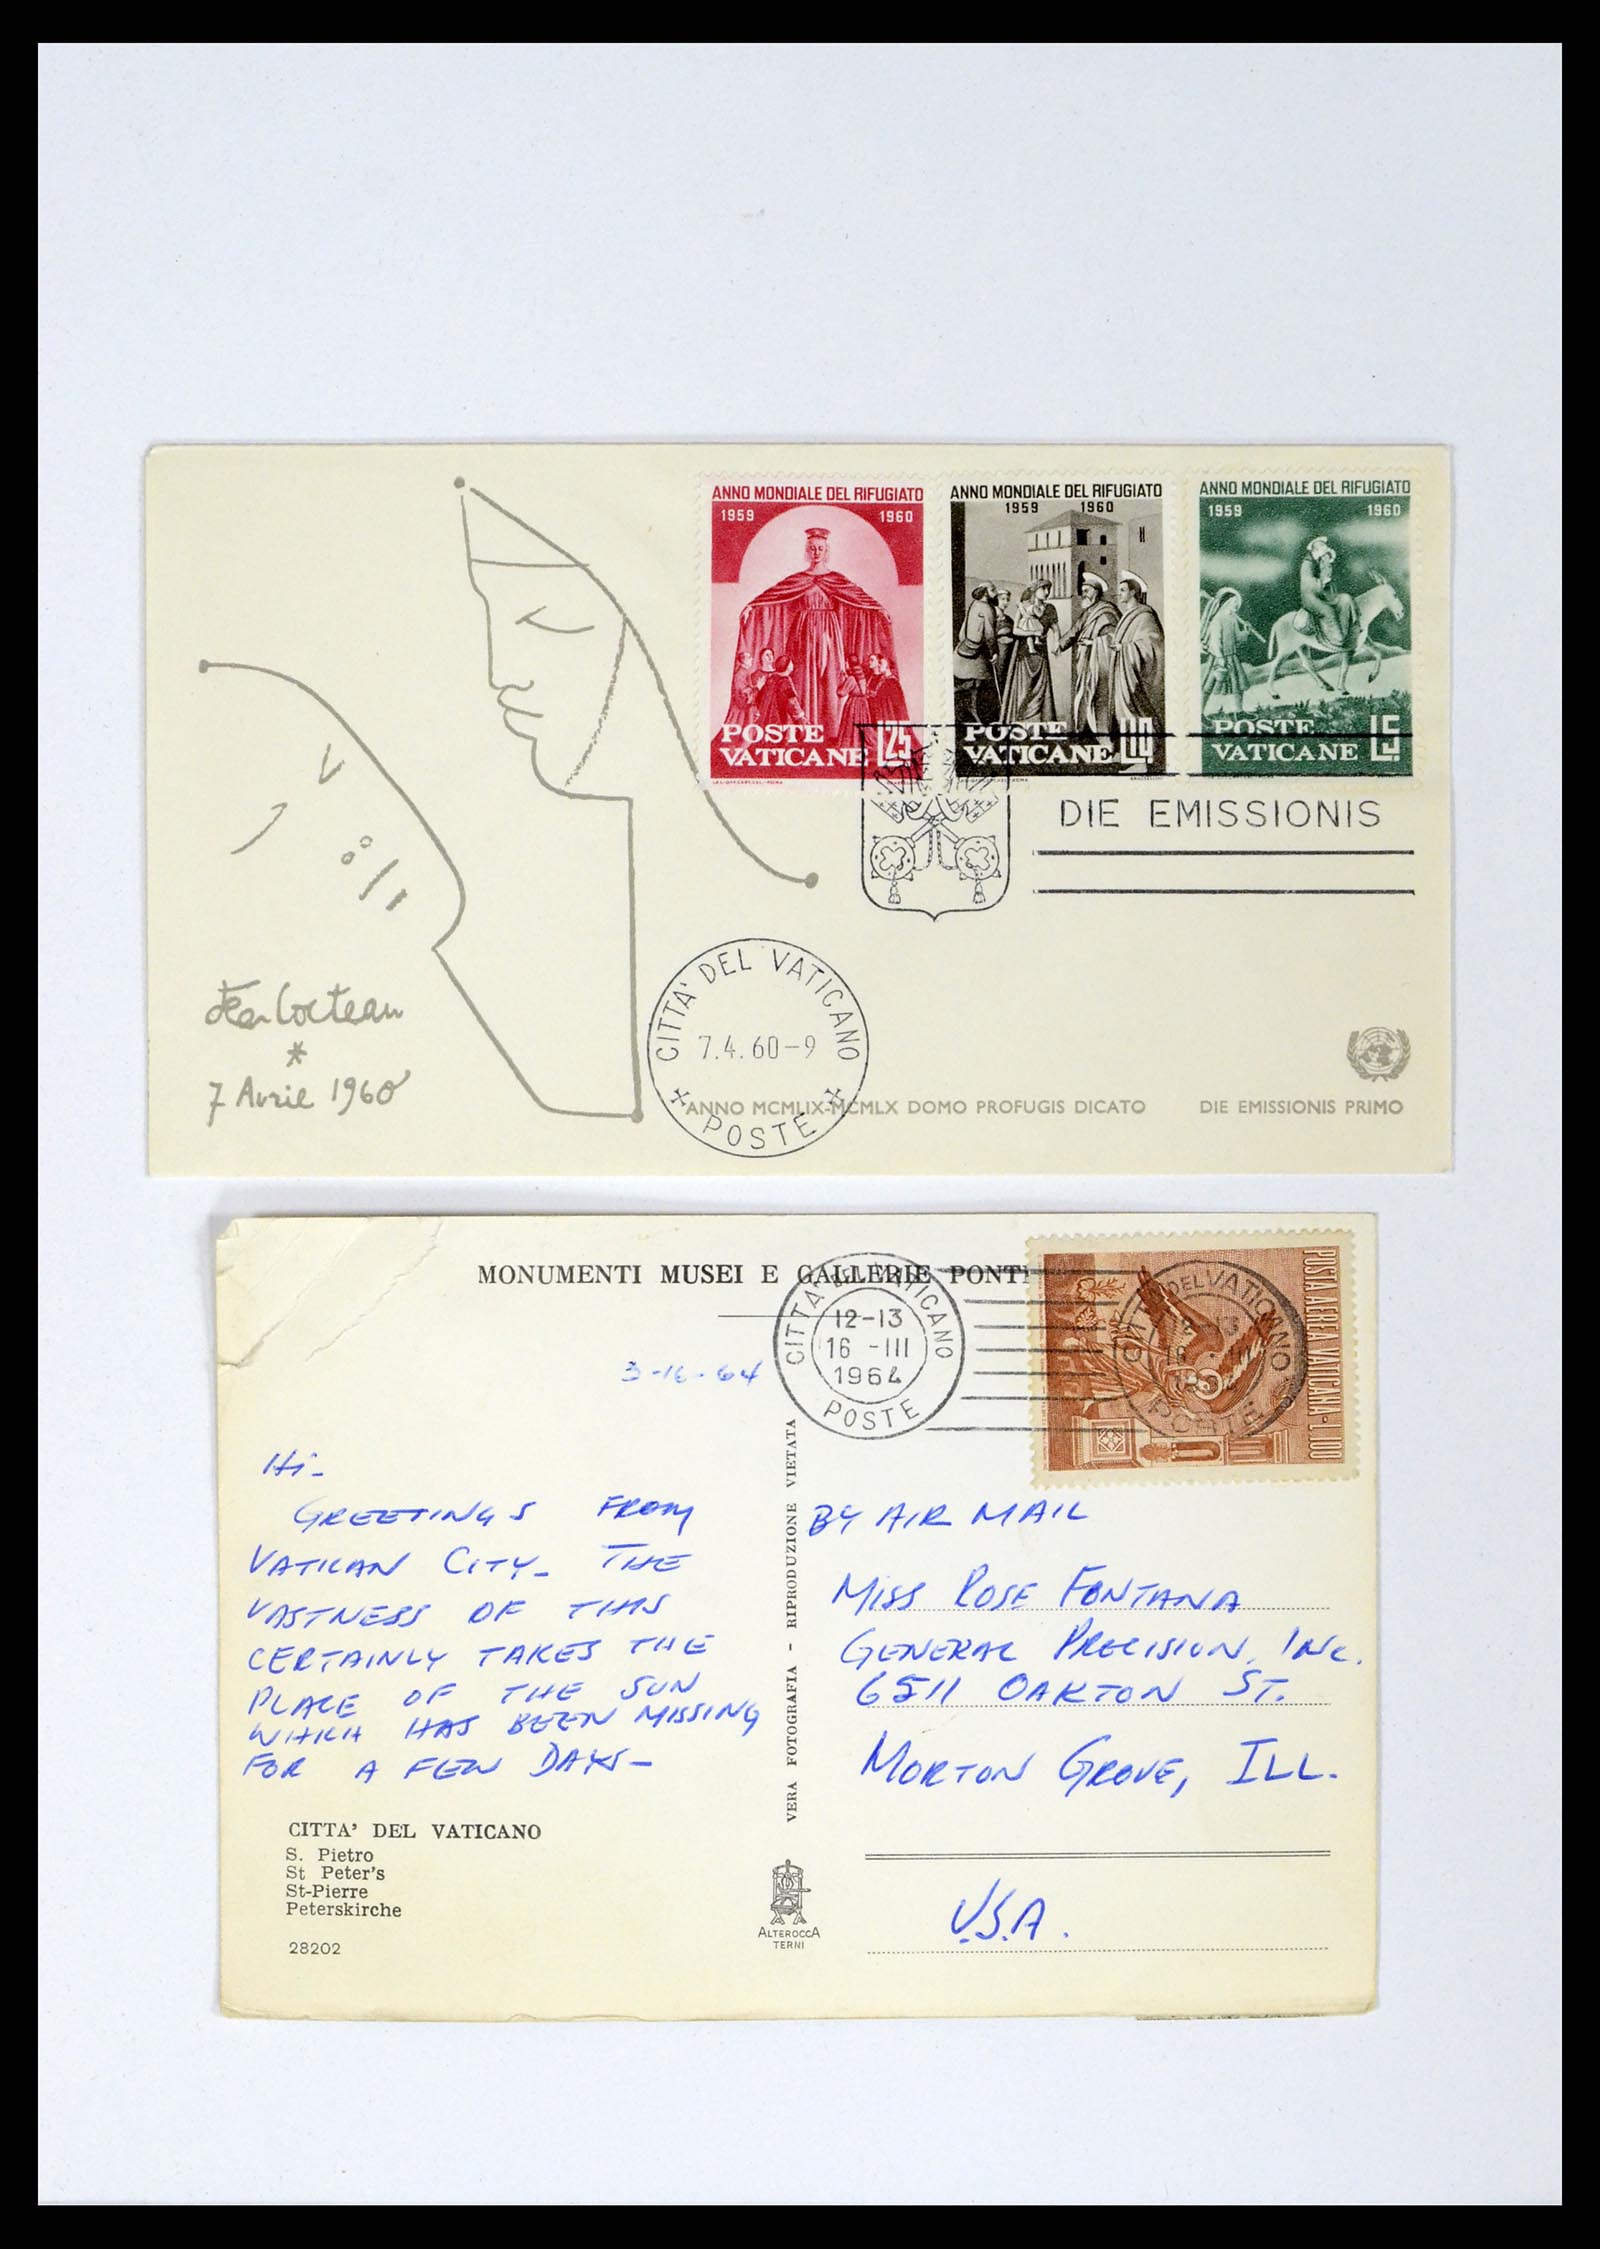 ANNO MONDIALE DEL RIFUGIATO
1959 1960
POSTE
VATICANE L.25
ANNO MONDIALE DEL RIFUGIATO
1959 1960
POSTE
VATICANE L.10
ANNO MONDIALE DEL RIFUGIATO
1959 1960
POSTE
VATICANE L.5
DIE EMISSIONIS
Jean Cocteau
*
7 Avril 1960
CITTA' DEL VATICANO
7.4.60-9
POSTE
ANNO MCMLIX-MCMLX DOMO PROFUGIS DICATO DIE EMISSIONIS PRIMO
MONUMENTI MUSEI E GALLERIE PONTI
CITTA' DEL VATICANO
12-13
16 -III
1964
POSTE
CITTA DEL VATICANO
16 - III
1964
POSTE
POSTA AEREA VATICANA - L.100
3-16-64
Hi-
GREETINGS FROM
VATICAN CITY- THE
VASTNESS OF THIS
CERTAINLY TAKES THE
PLACE OF THE SUN
WHICH HAS BEEN MISSING
FOR A FEW DAYS-
CITTA' DEL VATICANO
S. Pietro
St Peter's
St-Pierre
Peterskirche
28202
VERA FOTOGRAFIA - RIPRODUZIONE VIETATA
ALTEROCCA
TERNI
BY AIR MAIL
MISS ROSE FONTANA
GENERAL PRECISION, INC.
6511 OAKTON ST.
MORTON GROVE, ILL.
U.S.A.